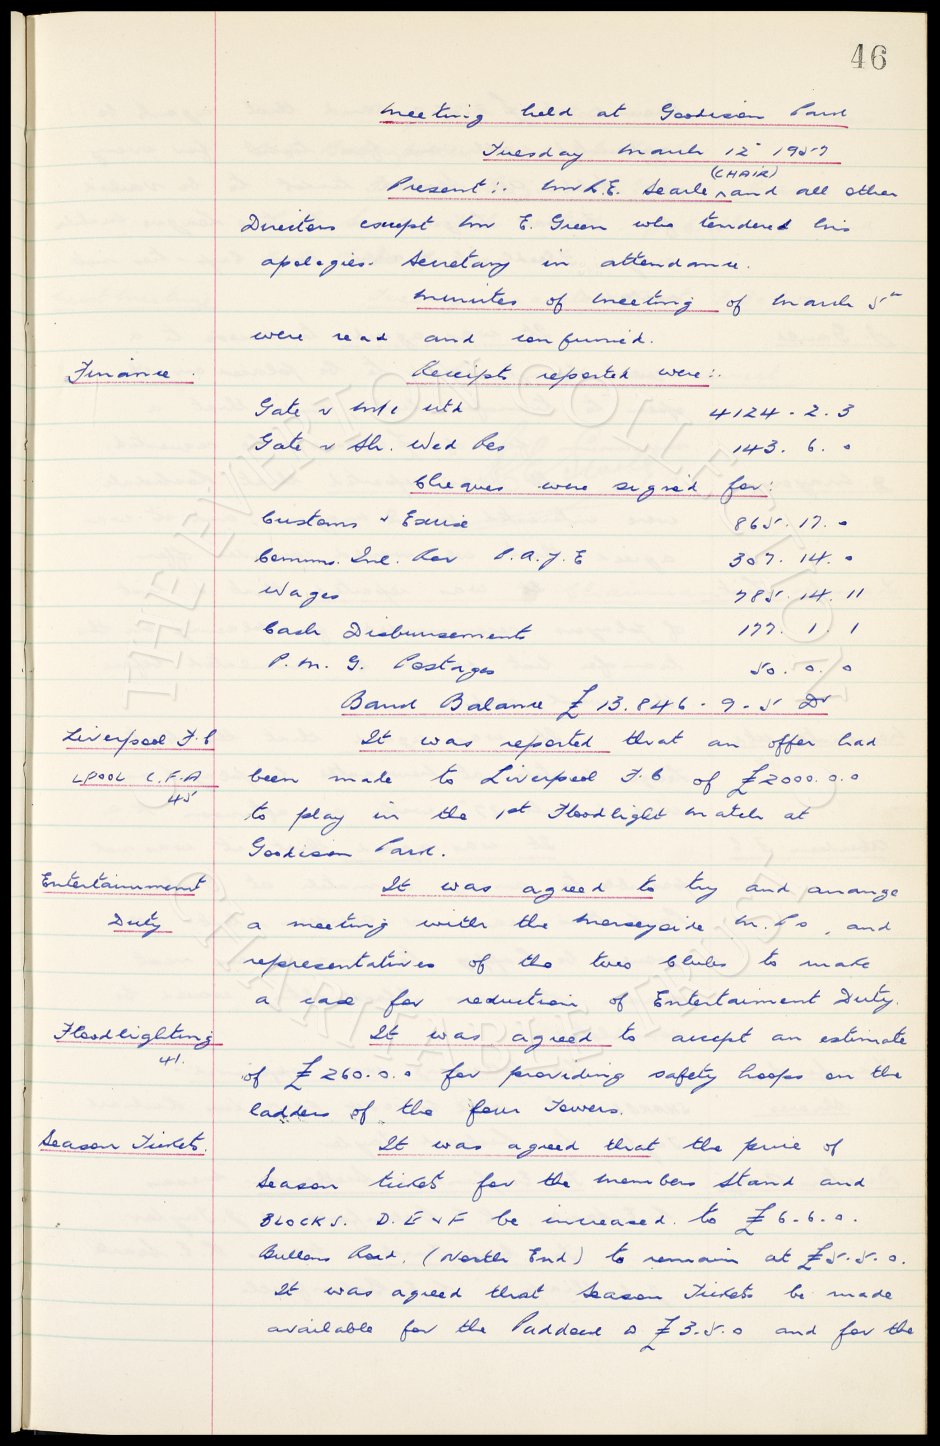 46
Meeting held at Goodison Park
Tuesday March 12th 1957
(CHAIR)
Present:. Mr R.E. Searle, and all other
Directors except Mr E. Green who tendered his
apologies. Secretary in attendance.
Minutes of Meeting of March 5th
were read and confirmed.
Finance. Receipts reported were:.
Gate v M/c Utd 4124. 2. 3
Gate v Sh. Wed Res 143. 6. 0
Cheques were signed for:
Customs & Excise 865. 17. 0
Comms. Inl. Rev P.A.Y.E 307. 14. 0
Wages 785. 14. 11
Cash Disbursements 177. 1. 1
P.M.G. Postages 50. 0. 0
Bank Balance £13.846. 9. 5 Dr
Liverpool F.C It was reported that an offer had
LPOOL C.F.A been made to Liverpool F.C of £2000.0.0
45
to play in the 1st Floodlight match at
Goodison Park.
Entertainment It was agreed to try and arrange
Duty a meeting with the Merseyside M.Ps, and
representatives of the two Clubs to make
a case for reduction of Entertaiment Duty.
Floodlighting It was agreed to accept an estimate
41.
of £260.0.0 for providing safety hoops on the
ladders of the four Towers.
Season Tickets. It was agreed that the price of
Season tickets for the Members Stand and
BLOCKS. D. E & F be increased to £6.6.0.
Bullens Road. (North End) to remain at £5.5.0.
It was agreed that Season Tickets be made
available for the Paddock @ £3.5.0 and for the
THE EVERTON COLLECTION
CHARITABLE TRUST